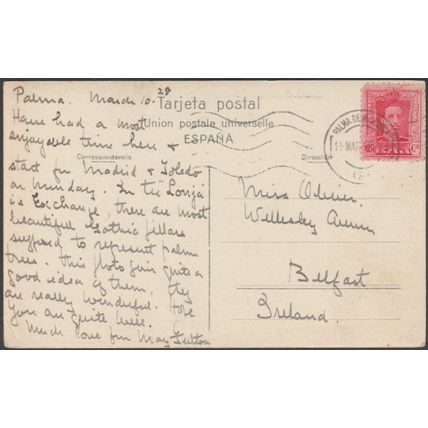 Palma. March 10. 28
Tarjeta postal
Union postale universelle
ESPAÑA
Correspondencia
Dirección
PALMA DE MA
11 MAR
Have had a most
enjoyable time here &
start for Madrid & Toledo
on Monday. In the "Lonja"
is Exchange, there are most
beautiful Gothic pillars
supposed to represent palm
trees. this photo gives quite a
good idea of them, they
are really wonderful. Hope
you are quite well.
Much love from May Fulton
Miss
Wellesley Avenue
Belfast
Ireland